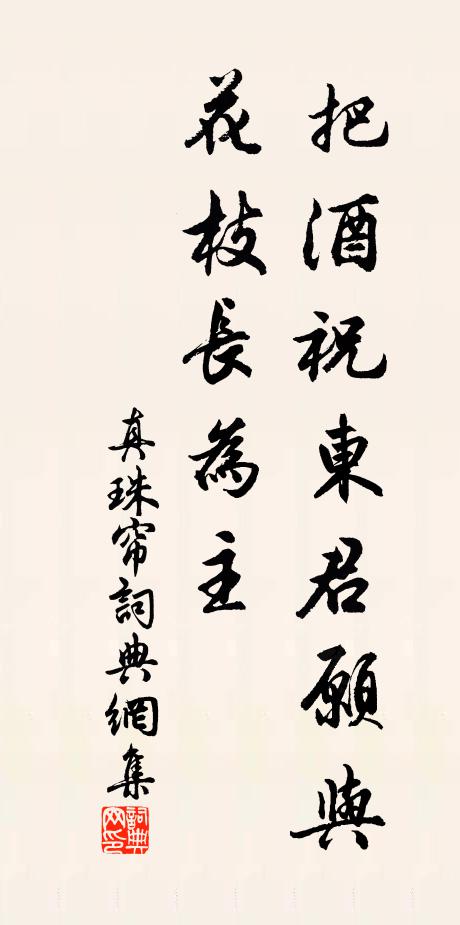 把酒祝東君願與
花枝長為主
真珠帘詞典網集
詞典
网印